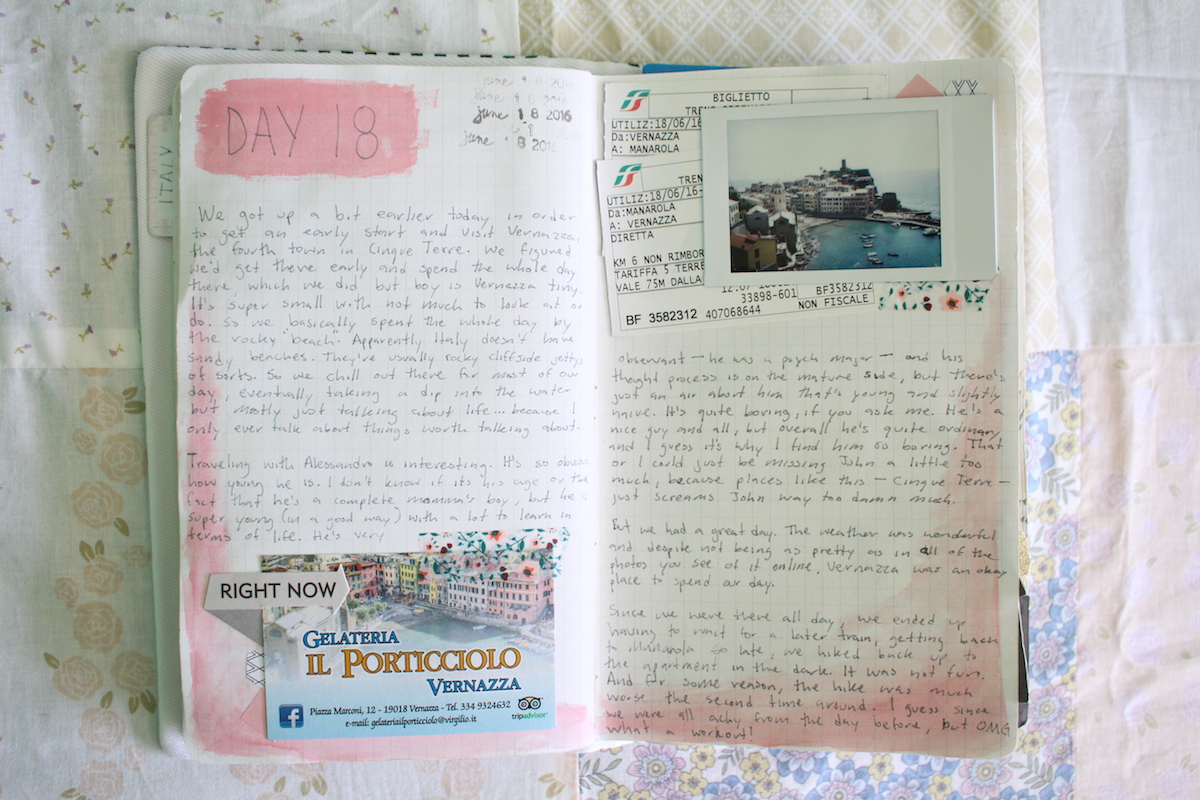 DAY 18
june 1 8 2016
june 8 2016
ITALY
We got up a bit earlier today in order
to get an early start and visit Vernazza,
the fourth town in Cinque Terre. We figured
we'd get there early and spend the whole day
there which we did but boy is Vernazza tiny.
It's super small with not much to look at or
do. So we basically spent the whole day by
the rocky "beach". Apparently Italy doesn't have
sandy beaches. They're usually rocky cliffside jettys
of sorts. So we chill out there for most of our
day, eventually taking a dip into the water
but mostly just talking about life... because I
only ever talk about things worth talking about.
Traveling with Alessandro is interesting. It's so obvious
how young he is. I don't know if its his age or the
fact that he's a complete momma's boy, but he's
super young (in a good way) with a lot to learn in
terms of life. He's very
RIGHT NOW
GELATERIA
IL PORTICCIOLO
VERNAZZA
Piazza Marconi, 12 - 19018 Vernazza - Tel. 334 9324632
e-mail: gelateriailporticciolo@virgilio.it
tripadvisor
BIGLIETTO
UTILIZ:18/06/16
Da:VERNAZZA
A: MANAROLA
TREN
UTILIZ:18/06/16-
Da:MANAROLA
A: VERNAZZA
DIRETTA
KM 6 NON RIMBOR
TARIFFA 5 TERRE
VALE 75M DALLA
33898-601 BF3582312
NON FISCALE
BF 3582312 407068644
observant — he was a psych major — and his
thought process is on the mature side, but there's
just an air about him that's young and slightly
naive. It's quite boring, if you ask me. He's a
nice guy and all, but overall he's quite ordinary
and I guess it's why I find him so boring. That
or I could just be missing John a little too
much, because places like this — Cinque Terre —
just screams John way too damn much.
But we had a great day. The weather was wonderful
and despite not being as pretty as in all of the
photos you see of it online, Vernazza was an okay
place to spend our day.
Since we were there all day, we ended up
having to wait for a later train, getting back
to Manarola so late, we hiked back up to
the apartment in the dark. It was not fun.
And for some reason, the hike was much
worse the second time around. I guess since
we were all achy from the day before, but OMG
what a workout!